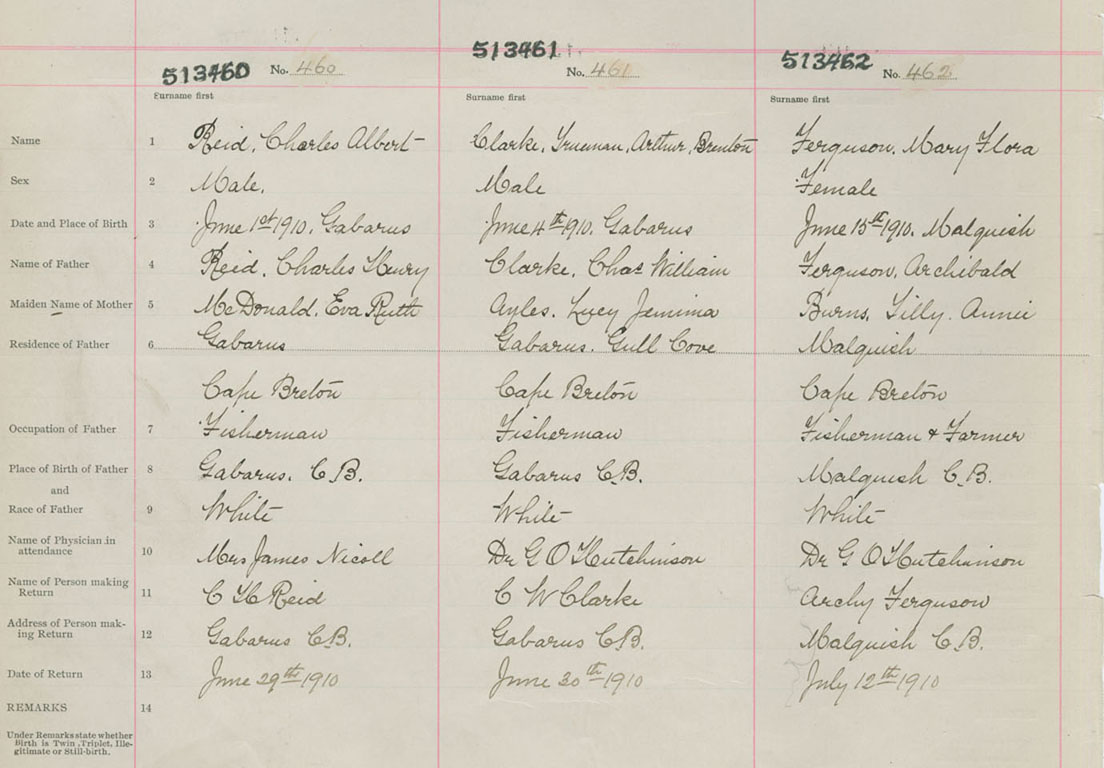 513460 No. 460 513461 No. 461 513462 No. 462
Surname first Surname first Surname first
Name 1 Reid, Charles Albert Clarke, Trueman, Arthur, Brenton Ferguson, Mary Flora
Sex 2 Male. Male Female
Date and Place of Birth 3 June 1st 1910, Gabarus June 4th 1910, Gabarus June 15th 1910, Malquish
Name of Father 4 Reid, Charles Henry Clarke, Chas William Ferguson, Archibald
Maiden Name of Mother 5 McDonald, Eva Ruth Ayles, Lucy Jemima Burns, Tilly Annie
Residence of Father 6 Gabarus Gabarus, Gull Cove Malquish
Cape Breton Cape Breton Cape Breton
Occupation of Father 7 Fisherman Fisherman Fisherman & Farmer
Place of Birth of Father 8 Gabarus, C.B. Gabarus C.B. Malquish C.B.
and
Race of Father 9 White White White
Name of Physician in
attendance 10 Mrs James Nicoll Dr G O Hutchinson Dr G O Hutchinson
Name of Person making
Return 11 C H Reid C W Clarke Archy Ferguson
Address of Person mak-
ing Return 12 Gabarus C.B. Gabarus C.B. Malquish C.B.
Date of Return 13 June 29th 1910 June 30th 1910 July 12th 1910
REMARKS 14
Under Remarks state whether
Birth is Twin, Triplet, Ille-
gitimate or Still-birth.